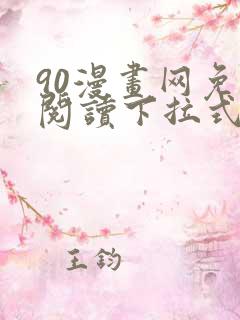 90漫畫网免
閱讀下拉式
王鈞